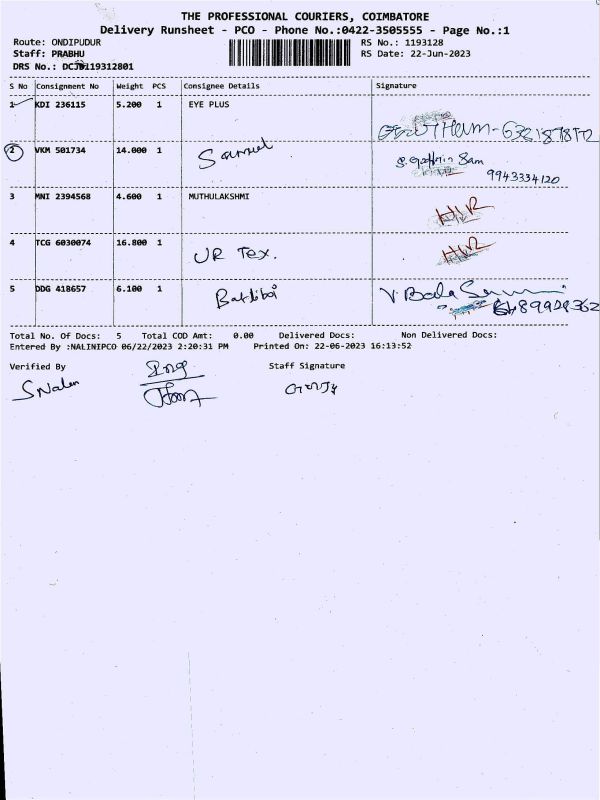 THE PROFESSIONAL COURIERS, COIMBATORE
Delivery Runsheet - PCO - Phone No.:0422-3505555 - Page No.:1
Route: ONDIPUDUR RS No.: 1193128
Staff: PRABHU RS Date: 22-Jun-2023
DRS No.: 119312801
S No Consignment No Weight PCS Consignee Details Signature
1 KDI 236115 5.200 1 EYE PLUS
2 VKM 501734 14.000 1 Samuel
9943334120
3 MNI 2394568 4.600 1 MUTHULAKSHMI
4 TCG 6030074 16.800 1 UR Tex.
5 DDG 418657 6.100 1 Batliboi V. Bala
Total No. Of Docs: 5 Total COD Amt: 0.00 Delivered Docs: Non Delivered Docs:
Entered By :NALINIPCO 06/22/2023 2:20:31 PM Printed On: 22-06-2023 16:13:52
Verified By Staff Signature